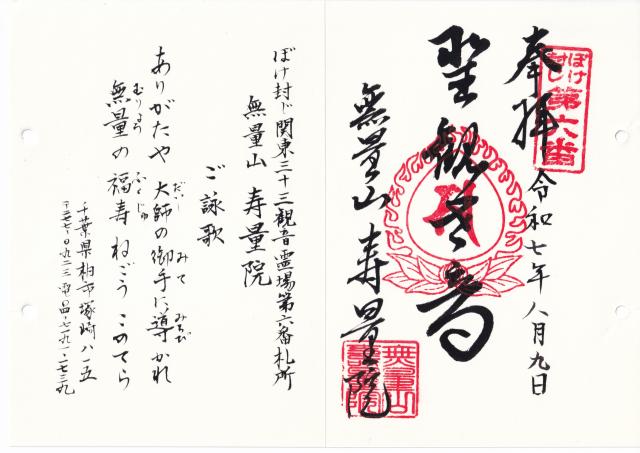 奉拝
ぼけ
封じ
第六番
令和七年八月九日
聖観世音
無量山 寿量院
無量山
寿量院
ぼけ封じ関東三十三観音霊場第六番札所
無量山 寿量院
ご詠歌
ありがたや 大師の御手に導かれ
だいし みて みちび
無量の福寿ねごうこのてら
むりょう ふくじゅ
千葉県柏市塚崎八一五